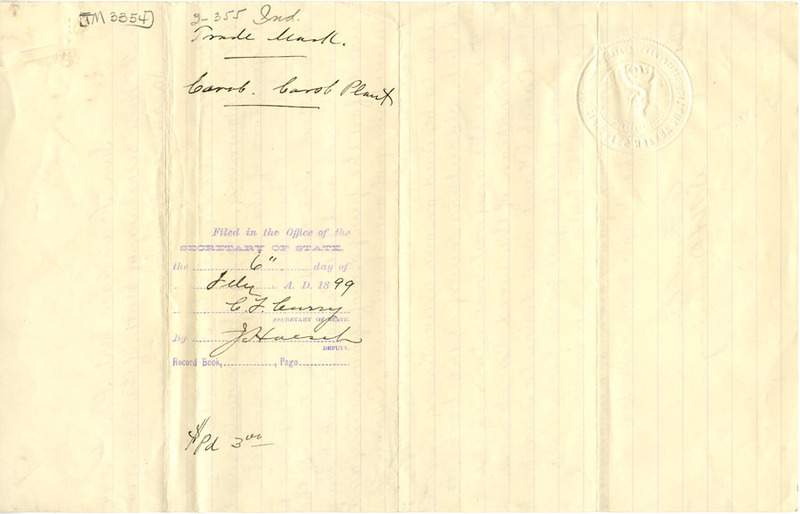 TM 3354
2-355 Ind.
Trade Mark.
Carob. Carob Plant
Filed in the Office of the
SECRETARY OF STATE.
the 6" day of
Feby A. D. 1899
C. F. Curry
SECRETARY OF STATE.
By J Hoesch
DEPUTY.
Record Book, , Page
$ Pd 3 00